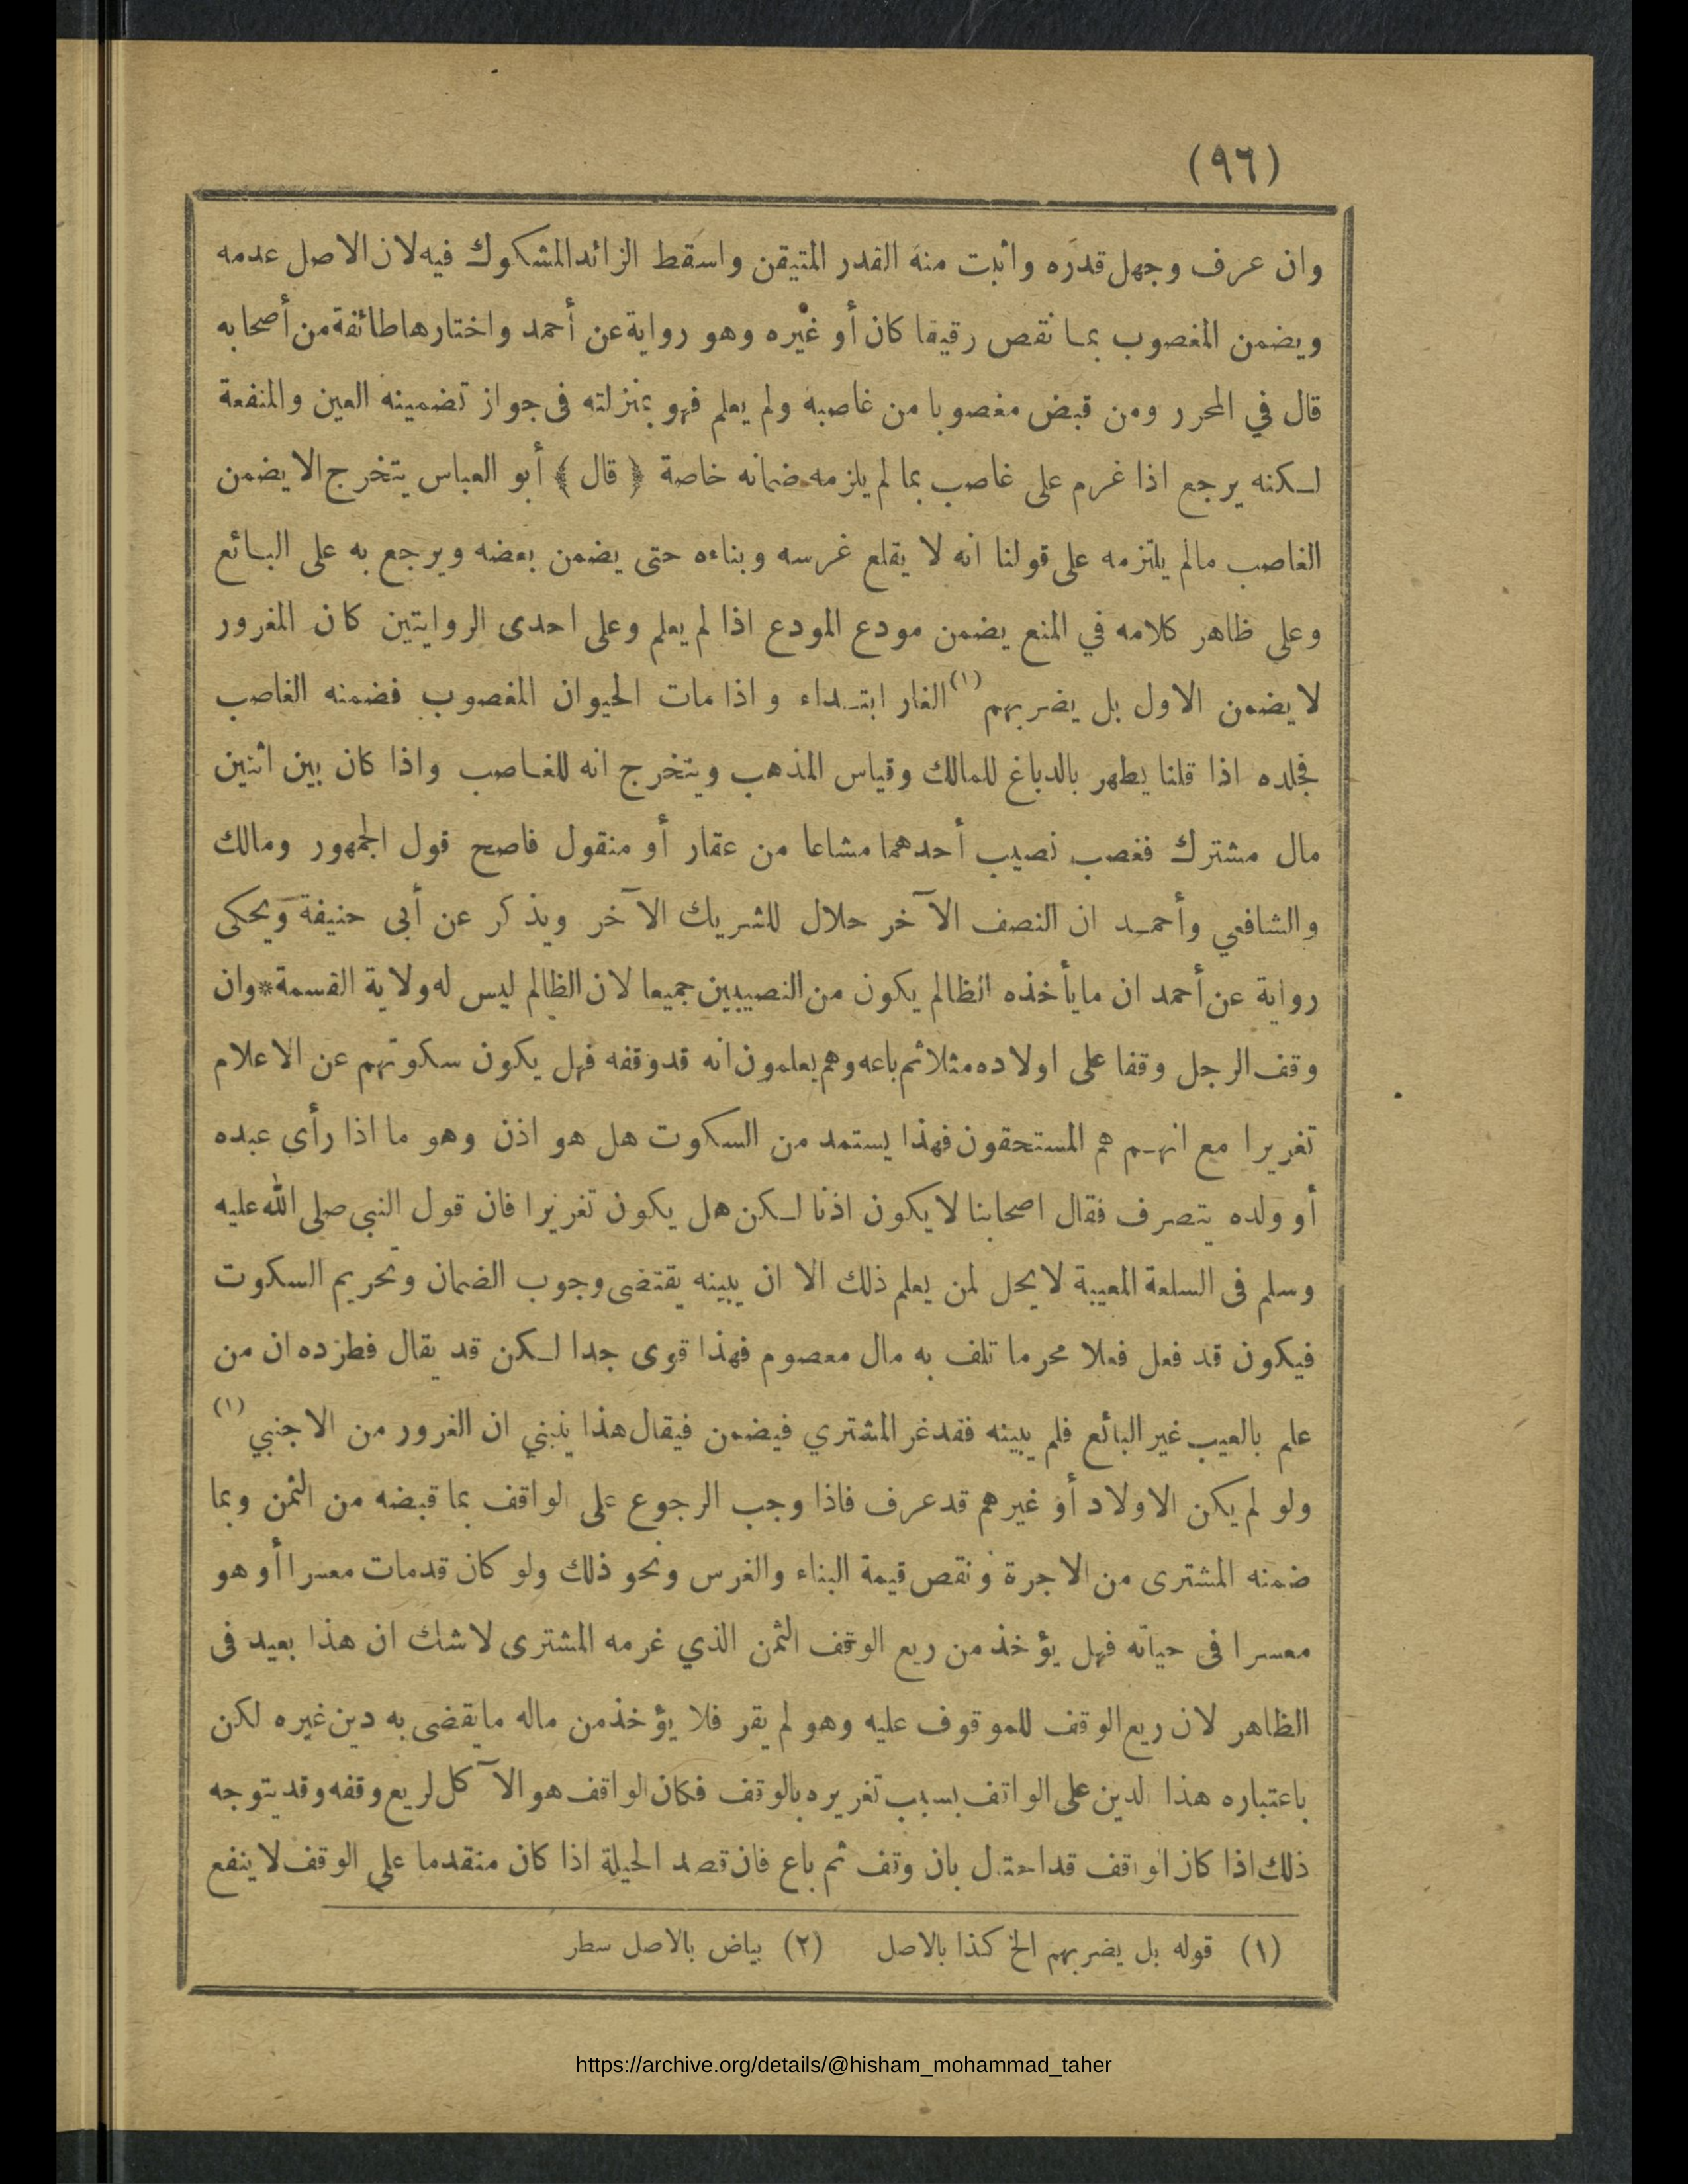 (٩٦)
وان عرف وجهل قدره واثبت منه القدر المتيقن واسقط الزائد المشكوك فيه لان الاصل عدمه
ويضمن المغصوب بما نقص رقيقا كان أو غيره وهو رواية عن أحمد واختارها طائفة من أصحابه
قال في المحرر ومن قبض مغصوبا من غاصبه ولم يعلم فهو بمنزلته فى جواز تضمينه العين والمنفعة
لكنه يرجع اذا غرم على غاصب بما لم يلزمه ضمانه خاصة ﴿ قال ﴾ أبو العباس يتخرج الا يضمن
الغاصب مالم يلتزمه على قولنا انه لا يقلع غرسه وبناءه حتى يضمن بعضه ويرجع به على البائع
وعلى ظاهر كلامه في المنع يضمن مودع المودع اذا لم يعلم وعلى احدى الروايتين كان المغرور
لا يضمن الاول بل يضربهم (١) الغار ابتداء واذا مات الحيوان المغصوب فضمنه الغاصب
فجلده اذا قلنا يطهر بالدباغ للمالك وقياس المذهب ويتخرج انه للغاصب واذا كان بين اثنين
مال مشترك فغصب نصيب أحدهما مشاعا من عقار أو منقول فاصح قول الجمهور ومالك
والشافعي وأحمد ان النصف الآخر حلال للشريك الآخر ويذكر عن أبى حنيفة ويحكى
رواية عن أحمد ان ما يأخذه الظالم يكون من النصيبين جميعا لان الظالم ليس له ولاية القسمة * وان
وقف الرجل وقفا على اولاده مثلا ثم باعه وهم يعلمون انه قد وقفه فهل يكون سكوتهم عن الاعلام
تغريرا مع انهم هم المستحقون فهذا يستمد من السكوت هل هو اذن وهو ما اذا رأى عبده
أو ولده يتصرف فقال اصحابنا لا يكون اذنا لكن هل يكون تغريرا فان قول النبى صلى الله عليه
وسلم فى السلعة المعيبة لا يحل لمن يعلم ذلك الا ان يبينه يقتضى وجوب الضمان وتحريم السكوت
فيكون قد فعل فعلا محرما تلف به مال معصوم فهذا قوى جدا لكن قد يقال فطرده ان من
علم بالعيب غير البائع فلم يبينه فقد غر المشتري فيضمن فيقال هذا ينبني ان الغرور من الاجنبي (١)
ولو لم يكن الاولاد أو غيرهم قد عرف فاذا وجب الرجوع على الواقف بما قبضه من الثمن وبما
ضمنه المشترى من الاجرة ونقص قيمة البناء والغرس ونحو ذلك ولو كان قد مات معسرا أو هو
معسرا فى حياته فهل يؤخذ من ريع الوقف الثمن الذي غرمه المشترى لا شك ان هذا بعيد فى
الظاهر لان ريع الوقف للموقوف عليه وهو لم يقر فلا يؤخذ من ماله ما يقضى به دين غيره لكن
باعتباره هذا الدين على الواقف بسبب تغريره بالوقف فكان الواقف هو الآكل لريع وقفه وقد يتوجه
ذلك اذا كان الواقف قد احتال بان وقف ثم باع فان قصد الحيلة اذا كان متقدما على الوقف لا ينفع
(١) قوله بل يضربهم الخ كذا بالاصل (٢) بياض بالاصل سطر
https://archive.org/details/@hisham_mohammad_taher